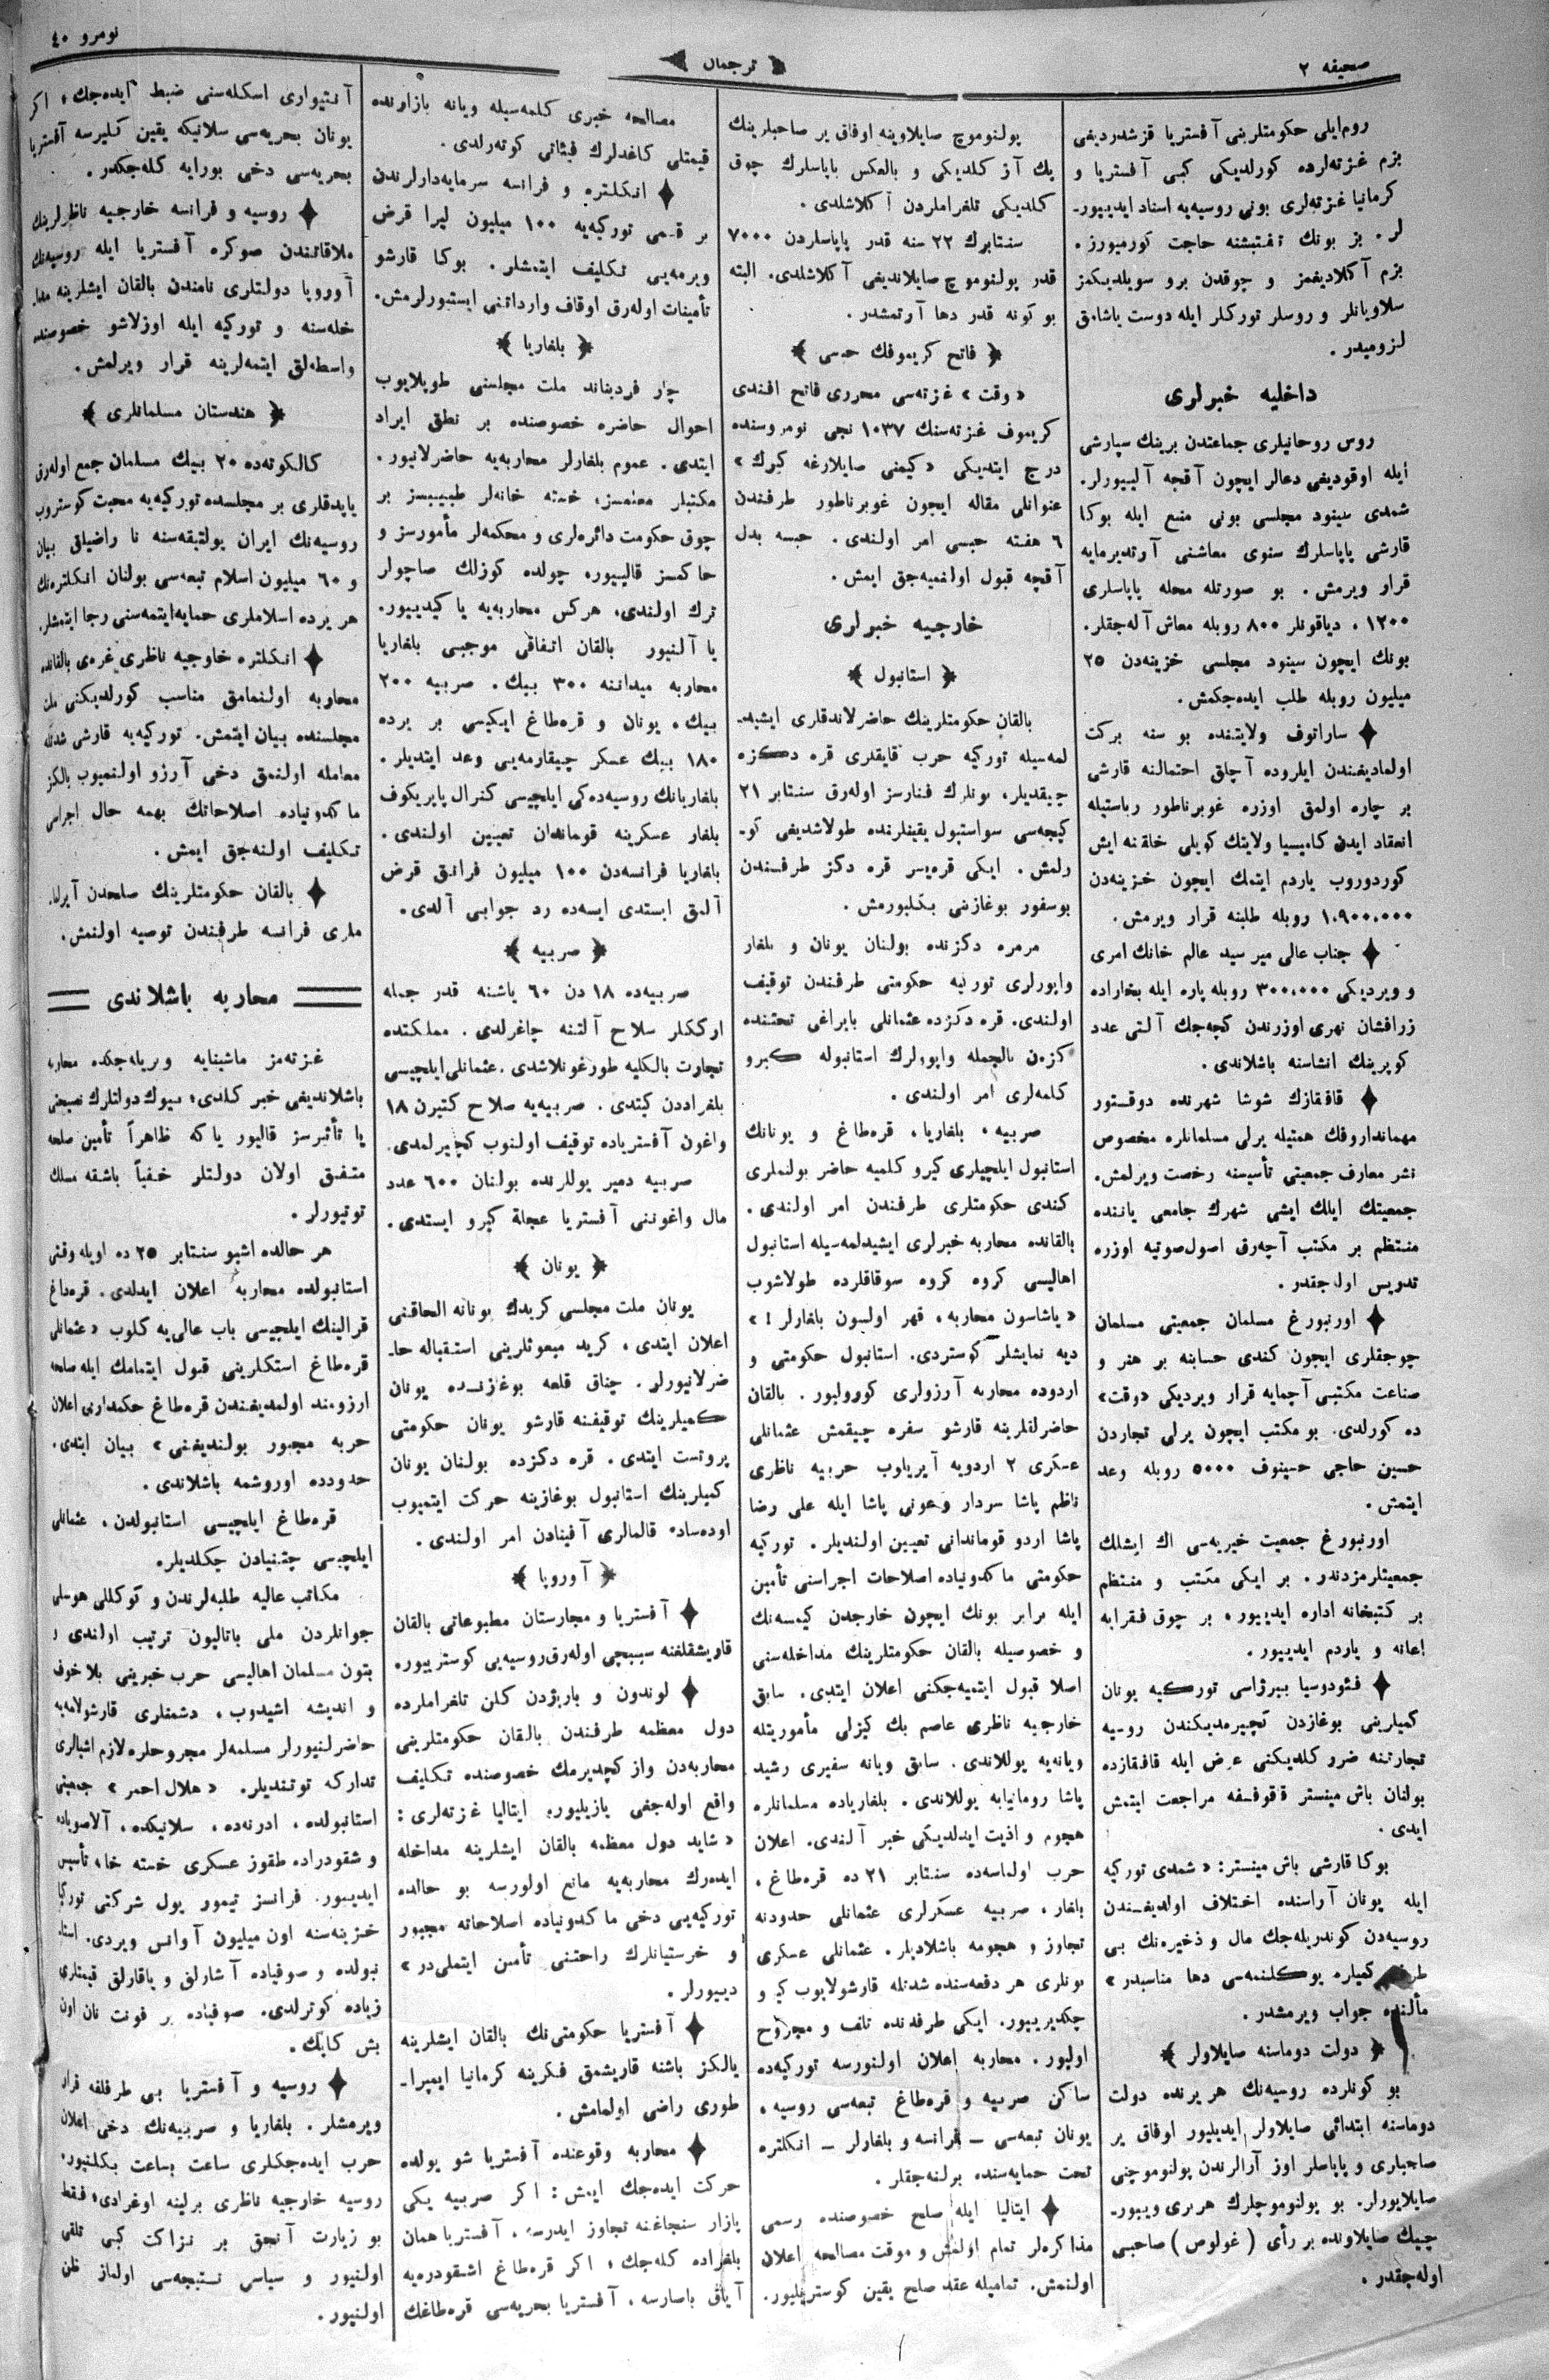 صحیفه ۲
﴿ ترجمان ﴾
نومرو ٤٠
روم‌ایلی حکومتلرینی آفستریا قزشدردیغی
بزم غزته‌لرده کورلدیکی کبی آفستریا و
کرمانیا غزته‌لری بونی روسیه‌یه اسناد ایدییور-
لر. بز بونك تفتیشنه حاجت کورمیورز.
بزم آکلادیغمز و چوقدن برو سویلدیکمز
سلاویانلر و روسلر تورکلر ایله دوست یاشامق
لزومیدر.
داخلیه خبرلری
روس روحانیلری جماعتدن برینك سپارشی
ایله اوقودیغی دعالر ایچون آقچه آلییورلر.
شمدی سینود مجلسی بونی منع ایله بوکا
قارشی پاپاسلرك سنوی معاشنی آرتدیرمایه
قرار ویرمش. بو صورتله محله پاپاسلری
۱۲۰۰، دیاقونلر ۸۰۰ روبله معاش آله‌جقلر.
بونك ایچون سینود مجلسی خزینه‌دن ۲۵
میلیون روبله طلب ایده‌جکمش.
ساراتوف ولایتنده بو سنه برکت
اولمادیغندن ایلروده آچلق احتمالنه قارشی
بر چاره اولمق اوزره غوبرناطور ریاستیله
انعقاد ایدن کامیسیا ولایتك کویلی خلقنه ایش
کوردوروب یاردم ایتمك ایچون خزینه‌دن
۱،۹۰۰،۰۰۰ روبله طلبنه قرار ویرمش.
جناب عالی میر سید عالم خانك امری
و ویردیکی ۳۰۰،۰۰۰ روبله پاره ایله بخاراده
زرافشان نهری اوزرندن کچه‌جك آلتی عدد
کوپرینك انشاسنه باشلاندی.
قافقازك شوشا شهرنده دوقتور
مهمانداروفك همتیله یرلی مسلمانلره مخصوص
نشر معارف جمعیتی تأسیسنه رخصت ویرلمش.
جمعیتك ایلك ایشی شهرك جامعی یاننده
منتظم بر مکتب آچه‌رق اصول صوتیه اوزره
تدریس اوله‌جقدر.
اورنبورغ مسلمان جمعیتی مسلمان
چوجقلری ایچون کندی حسابنه بر هنر و
صناعت مکتبی آچمایه قرار ویردیکی «وقت»
ده کورلدی. بو مکتب ایچون یرلی تجاردن
حسین حاجی حسینوف ۵۰۰۰ روبله وعد
ایتمش.
اورنبورغ جمعیت خیریه‌سی اك ایشلك
جمعیتلرمزدندر. بر ایکی مکتب و منتظم
بر کتبخانه اداره ایدییور، بر چوق فقرایه
اعانه و یاردم ایدییور.
فئودوسیا بیرژاسی تورکیه یونان
کمیلرینی بوغازدن کچیرمدیکندن روسیه
تجارتنه ضرو کلدیکنی عرض ایله قافقازده
بولنان باش مینستر قوقوفسقه مراجعت ایتمش
ایدی.
بوکا قارشی باش مینستر: «شمدی تورکیه
ایله یونان آراسنده اختلاف اولدیغندن
روسیه‌دن کوندریله‌جك مال و ذخیره‌نك بی
طرف کمیلره یوکلنمه‌سی دها مناسبدر»
مألنده جواب ویرمشدر.
﴿ دولت دوماسنه صایلاولر ﴾
بو کونلرده روسیه‌نك هر یرنده دولت
دوماسنه ابتدائی صایلاولر ایدیلیور اوفاق یر
صاحبلری و پاپاسلر اوز آرالرندن پولنوموچنی
صایلایورلر. بو پولنوموچلرك هربری ویبور-
چیك صایلاونده بر رأی (غولوص) صاحبی
اوله‌جقدر.
پولنوموچ صایلاوینه اوفاق یر صاحبلرینك
پك آز کلدیکی و بالعکس پاپاسلرك چوق
کلدیکی تلغراملردن آکلاشلدی.
سنتابرك ۲۲ سنه قدر پاپاسلردن ۷۰۰۰
قدر پولنوموچ صایلاندیغی آکلاشلدی. البته
بو کونه قدر دها آرتمشدر.
﴿ فاتح کریموفك حبسی ﴾
«وقت» غزته‌سی محرری فاتح افندی
کریموف غزته‌سنك ۱۰۳۷ نجی نومروسنده
درج ایتدیکی «کیمنی صایلارغه کیرك»
عنوانلی مقاله ایچون غوبرناطور طرفندن
٦ هفته حبسی امر اولندی. حبسه بدل
آقچه قبول اولنمیه‌جق ایمش.
خارجیه خبرلری
﴿ استانبول ﴾
بالقان حکومتلرینك حاضرلاندقلری ایشید-
لمه‌سیله تورکیه حرب قایقلری قره دکزه
چیقدیلر، بونلرك فنارسز اوله‌رق سنتابر ۲۱
کیجه‌سی سواستپول یقینلرنده طولاشدیغی کو-
رلمش. ایکی قره‌یسر قره دکز طرفندن
بوسفور بوغازینی بکلیورمش.
مرمره دکزنده بولنان یونان و بلغار
واپورلری تورکیه حکومتی طرفندن توقیف
اولندی. قره دکزده عثمانلی بایراغی تحتنده
کزه‌ن بالجمله واپورلرك استانبوله کیرو
کلمه‌لری امر اولندی.
صربیه، بلغاریا، قره‌طاغ و یونانك
استانبول ایلچیلری کیرو کلمیه حاضر بولنملری
کندی حکومتلری طرفندن امر اولندی.
بالقانده محاربه خبرلری ایشیدلمه‌سیله استانبول
اهالیسی کروه کروه سوقاقلرده طولاشوب
«یاشاسون محاربه، قهر اولسون بلغارلر!»
دیه نمایشلر کوستردی. استانبول حکومتی و
اردوده محاربه آرزولری کورولیور. بالقان
حاضرلقلرینه قارشو سفره چیقمش عثمانلی
عسکری ۲ اردویه آیریلوب حربیه ناظری
ناظم پاشا سردار وعونی پاشا ایله علی رضا
پاشا اردو قوماندانی تعیین اولندیلر. تورکیه
حکومتی ماکدونیاده اصلاحات اجراسنی تأمین
ایله برابر بونك ایچون خارجدن کیمسه‌نك
و خصوصیله بالقان حکومتلرینك مداخله‌سنی
اصلا قبول ایتمیه‌جکنی اعلان ایتدی. سابق
خارجیه ناظری عاصم بك کیزلی مأموریتله
ویانه‌یه یوللاندی. سابق ویانه سفیری رشید
پاشا رومانیایه یوللاندی. بلغاریاده مسلمانلره
هجوم و اذیت ایدلدیکی خبر آلندی. اعلان
حرب اولماسه‌ده سنتابر ۲۱ ده قره‌طاغ،
بلغار، صربیه عسکرلری عثمانلی حدودنه
تجاوز و هجومه باشلادیلر. عثمانلی عسکری
بونلری هر دفعه‌سنده شدتله قارشولایوب کیرو
چکدیرییور. ایکی طرفدنده تلف و مجروح
اولیور. محاربه اعلان اولنورسه تورکیه‌ده
ساکن صربیه و قره‌طاغ تبعه‌سی روسیه،
یونان تبعه‌سی – فرانسه و بلغارلر – انکلتره
تحت حمایه‌سنده بولنه‌جقلر.
ایتالیا ایله صلح خصوصنده رسمی
مذاکره‌لر تمام اولمش و موقت مصالحه اعلان
اولنمش. تمامیله عقد صلح یقین کوستریلیور.
مصالحه خبری کلمه‌سیله ویانه بازارنده
قیمتلی کاغدلرك فیئاتی کوته‌رلدی.
انکلتره و فرانسه سرمایه‌دارلرندن
بر قسمی تورکیه‌یه ۱۰۰ میلیون لیرا قرض
ویرمه‌یی تکلیف ایتمشلر. بوکا قارشو
تأمینات اوله‌رق اوقاف وارداتنی ایستیورلرمش.
﴿ بلغاریا ﴾
چار فردیناند ملت مجلسنی طوپلایوب
احوال حاضره خصوصنده بر نطق ایراد
ایتدی. عموم بلغارلر محاربه‌یه حاضرلانیور.
مکتبلر معلمسز، خسته خانه‌لر طبیبسز بر
چوق حکومت دائره‌لری و محکمه‌لر مأمورسز و
حاکمسز قالییور، چولده کوزلك صاچولر
ترك اولندی، هرکس محاربه‌یه یا کیدییور.
یا آلنیور بالقان اتفاقی موجبی بلغاریا
محاربه میداننه ۳۰۰ بیك، صربیه ۲۰۰
بیك، یونان و قره‌طاغ ایکیسی بر یرده
۱۸۰ بیك عسکر چیقارمه‌یی وعد ایتدیلر.
بلغاریانك روسیه‌ده‌کی ایلچیسی کنرال پاپریکوف
بلغار عسکرینه قوماندان تعیین اولندی.
بلغاریا فرانسه‌دن ۱۰۰ میلیون فرانق قرض
آلمق ایستدی ایسه‌ده رد جوابی آلدی.
﴿ صربیه ﴾
صربیه‌ده ۱۸ دن ٦۰ یاشنه قدر جمله
ارککلر سلاح آلتنه چاغرلدی. مملکتده
تجارت بالکلیه طورغونلاشدی. عثمانلی ایلچیسی
بلغراددن کیتدی. صربیه‌یه سلاح کتیرن ۱۸
واغون آفستریاده توقیف اولنوب کچیرلمدی.
صربیه دمیر یوللرنده بولنان ٦۰۰ عدد
مال واغوننی آفستریا عجله کیرو ایستدی.
﴿ یونان ﴾
یونان ملت مجلسی کریدك یونانه الحاقنی
اعلان ایتدی، کرید مبعوثلرینی استقباله حا-
ضرلانیورلر. چناق قلعه بوغازنده یونان
کمیلرینك توقیفنه قارشو یونان حکومتی
پروتست ایتدی. قره دکزده بولنان یونان
کمیلرینك استانبول بوغازینه حرکت ایتمیوب
اوده‌ساده قالمالری آفینادن امر اولندی.
﴿ آوروپا ﴾
آفستریا و مجارستان مطبوعاتی بالقان
قاریشقلغنه سببچی اوله‌رق روسیه‌یی کوسترییور.
لوندون و پاریژدن کلن تلغراملرده
دول معظمه طرفندن بالقان حکومتلرینی
محاربه‌دن واز کچدیرمك خصوصنده تکلیف
واقع اوله‌جغی یازیلیور. ایتالیا غزته‌لری:
«شاید دول معظمه بالقان ایشلرینه مداخله
ایده‌رك محاربه‌یه مانع اولورسه بو حالده
تورکیه‌یی دخی ماکدونیاده اصلاحاته مجبور
و خرستیانلرك راحتنی تأمین ایتملی‌در»
دییورلر.
آفستریا حکومتی‌نك بالقان ایشلرینه
یالکز باشنه قاریشمق فکرینه کرمانیا ایمپرا-
طوری راضی اولمامش.
محاربه وقوعنده آفستریا شو یولده
حرکت ایده‌جك ایمش: اکر صربیه یکی
بازار سنجاغنه تجاوز ایدرسه، آفستریا همان
بلغراده کله‌جك، اکر قره‌طاغ اشقودره‌یه
آیاق باصارسه، آفستریا بحریه‌سی قره‌طاغك
آنتیواری اسکله‌سنی ضبط ایده‌جك، اکر
یونان بحریه‌سی سلانیکه یقین کلیرسه آفستریا
بحریه‌سی دخی بورایه کله‌جکدر.
روسیه و فرانسه خارجیه ناظرلرینك
ملاقاتندن صوکره آفستریا ایله روسیه‌نك
آوروپا دولتلری نامندن بالقان ایشلرینه مدا-
خله‌سنه و تورکیه ایله اوزلاشو خصوصنده
واسطه‌لق ایتمه‌لرینه قرار ویرلمش.
﴿ هندستان مسلمانلری ﴾
کالکوته‌ده ۲۰ بیك مسلمان جمع اوله‌رق
یاپدقلری بر مجلسده تورکیه‌یه محبت کوستروب
روسیه‌نك ایران پولتیقه‌سنه نا راضیلق بیان
و ٦۰ میلیون اسلام تبعه‌سی بولنان انکلتره‌نك
هر یرده اسلاملری حمایه ایتمه‌سنی رجا ایتمشلر.
انکلتره خارجیه ناظری غره‌ی بالقانده
محاربه اولنمامق مناسب کورلدیکنی ملت
مجلسنده بیان ایتمش. تورکیه‌یه قارشی شدتله
معامله اولنمق دخی آرزو اولنمیوب یالکز
ماکدونیاده اصلاحاتك بهمه حال اجراسی
تکلیف اولنه‌جق ایمش.
بالقان حکومتلرینك صلحدن آیرلما-
ملری فرانسه طرفندن توصیه اولنمش.
محاربه باشلاندی
غزته‌مز ماشینایه ویریله‌جکده محاربه
باشلاندیغی خبر کلدی، بیوك دولتلرك نصیحتی
یا تأثیرسز قالیور یا که ظاهراً تأمین صلحه
متفق اولان دولتلر خفیاً باشقه مسلك
توتیورلر.
هر حالده اشبو سنتابر ۲۵ ده اویله وقتی
استانبولده محاربه اعلان ایدلدی. قره‌داغ
قرالینك ایلچیسی باب عالی‌یه کلوب «عثمانلی
قره‌طاغ استکلرینی قبول ایتمامك ایله صلحه
ارزومند اولمدیغندن قره‌طاغ حکمداری اعلان
حربه مجبور بولندیغنی» بیان ایتدی.
حدودده اوروشمه باشلاندی.
قره‌طاغ ایلچیسی استانبولدن، عثمانلی
ایلچیسی چتینیادن چکلدیلر.
مکاتب عالیه طلبه‌لرندن و کوکللی هوسلی
جوانلردن ملی باتالیون ترتیب اولندی و
بتون مسلمان اهالیسی حرب خبرینی بلا خوف
و اندیشه اشیدوب، دشمنلری قارشولامه‌یه
حاضرلنیورلر مسلمه‌لر مجروحلره لازم اشیالری
تدارکه توتندیلر. «هلال احمر» جمعیتی
استانبولده، ادرنه‌ده، سلانیکده، آلاصونیاده
و شقودراده طقوز عسکری خسته خانه تأسیس
ایدییور. فرانسز تیمور یول شرکتی تورکیا
خزینه‌سنه اون میلیون آوانس ویردی. استا-
نبولده و صوفیاده آشارلق و یاقارلق قیمتلری
زیاده کوترلدی. صوفیاده بر فونت نان اون
بش کاپك.
روسیه و آفستریا بی طرفلغه قرار
ویرمشلر. بلغاریا و صربیه‌نك دخی اعلان
حرب ایده‌جکلری ساعت بساعت بکلنیور.
روسیه خارجیه ناظری برلینه اوغرادی، فقط
بو زیارت آنجق بر نزاکت کبی تلقی
اولنیور و سیاسی نتیجه‌سی اولماز ظن
اولنیور.